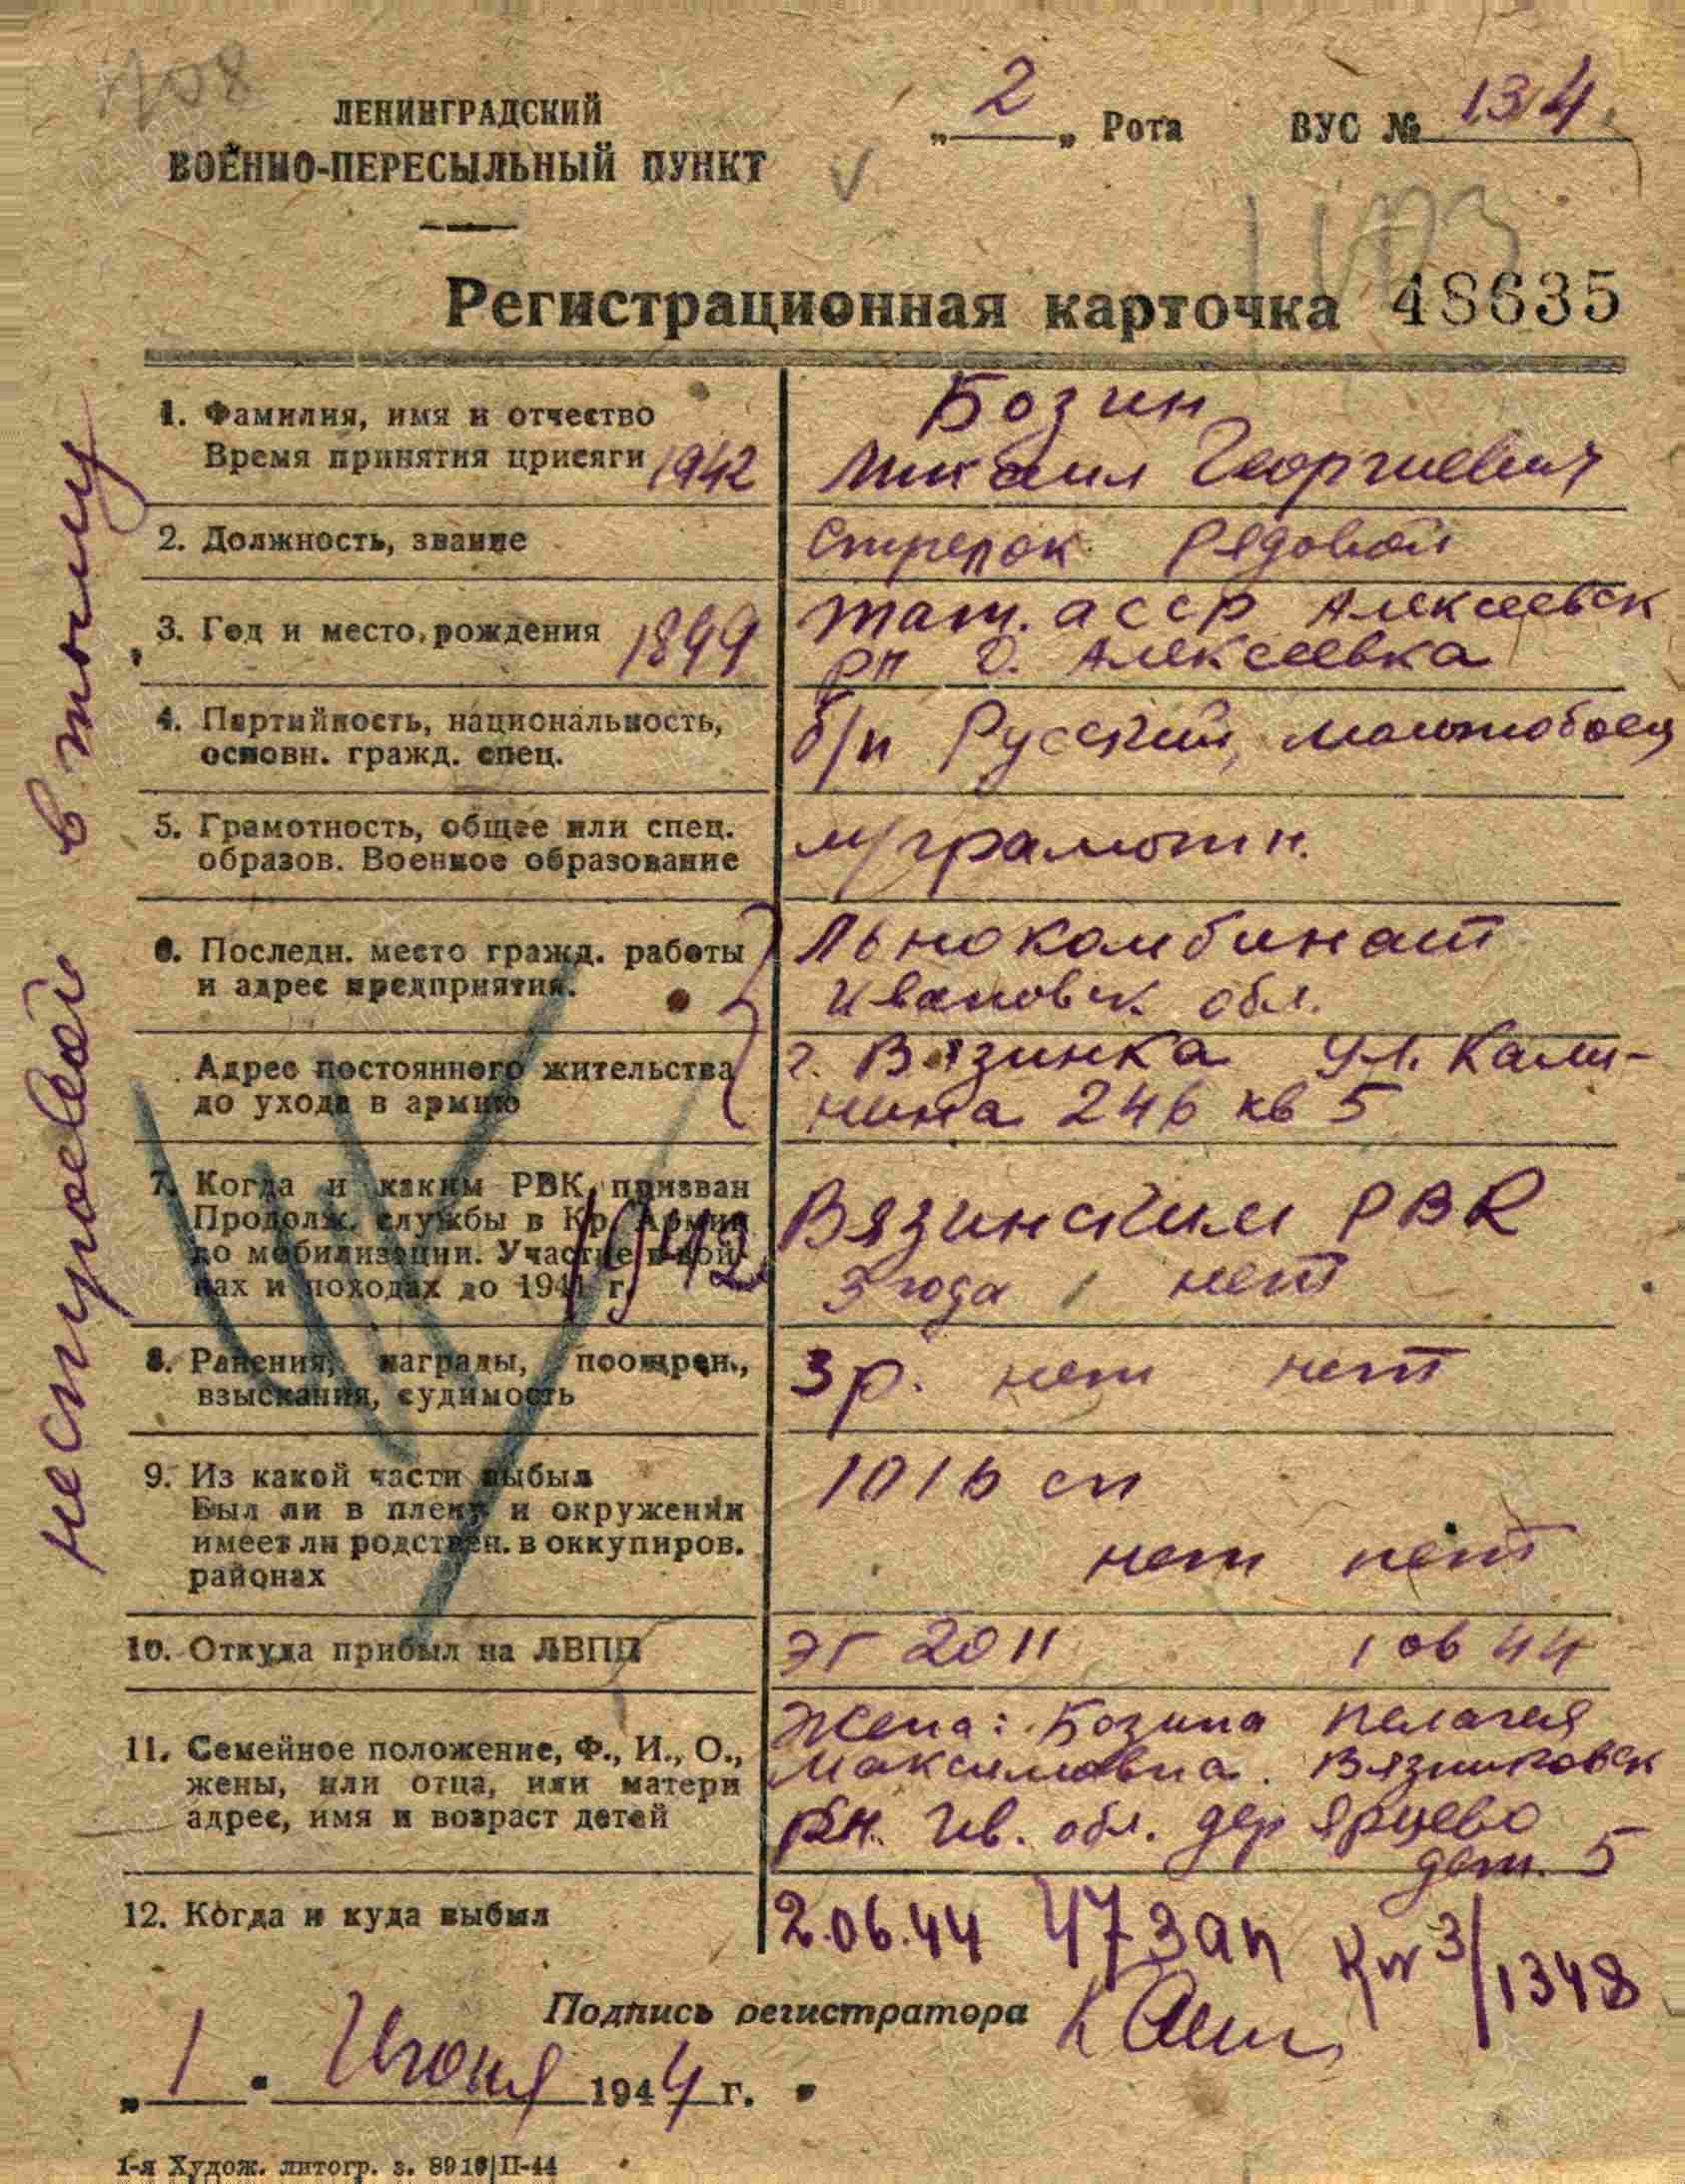 1708
ЛЕНИНГРАДСКИЙ
ВОЕННО-ПЕРЕСЫЛЬНЫЙ ПУНКТ
„ 2 „ Рота ВУС № 134
Регистрационная карточка 48635
1. Фамилия, имя и отчество Бозин
Время принятия присяги 1942 Михаил Георгиевич
2. Должность, звание Стрелок Рядовой
3. Год и место рождения 1899 Тат. асср Алексеевск
рн д. Алексеевка
4. Партийность, национальность, основн. гражд. спец. б/п Русский,
5. Грамотность, общее или спец.
образов. Военное образование м/грамотн.
6. Последн. место гражд. работы Льнокомбинат
и адрес предприятия. Ивановск. обл.
Адрес постоянного жительства г. Вязинка ул. Кали-
до ухода в армию нина 246 кв 5
7. Когда и каким РВК призван Вязинским РВК
Продолж. службы в Кр. Армии
до мобилизации. Участие в вой-
нах и походах до 1941 г. 1942 3 года нет
8. Ранения, награды, поощрен.,
взыскания, судимость 3 р. нет нет
9. Из какой части выбыл 1016 сп
Был ли в плену и окружении
имеет ли родствен. в оккупиров. нет нет
районах
10. Откуда прибыл на ЛВПП ЭГ 2011 1 06 44
Жена: Бозина Пелагея
11. Семейное положение, Ф., И., О., Максимовна. Вязниковск
жены, или отца, или матери
адрес, имя и возраст детей рн. Ив. обл. дер Ярцево
дет. 5
12. Когда и куда выбыл 2.06.44 47 зап 3/1348
Подпись регистратора
„ 1 " Июня 1944 г.
1-я Худож. литогр. з. 8910|II-44
нестроевой в тылу